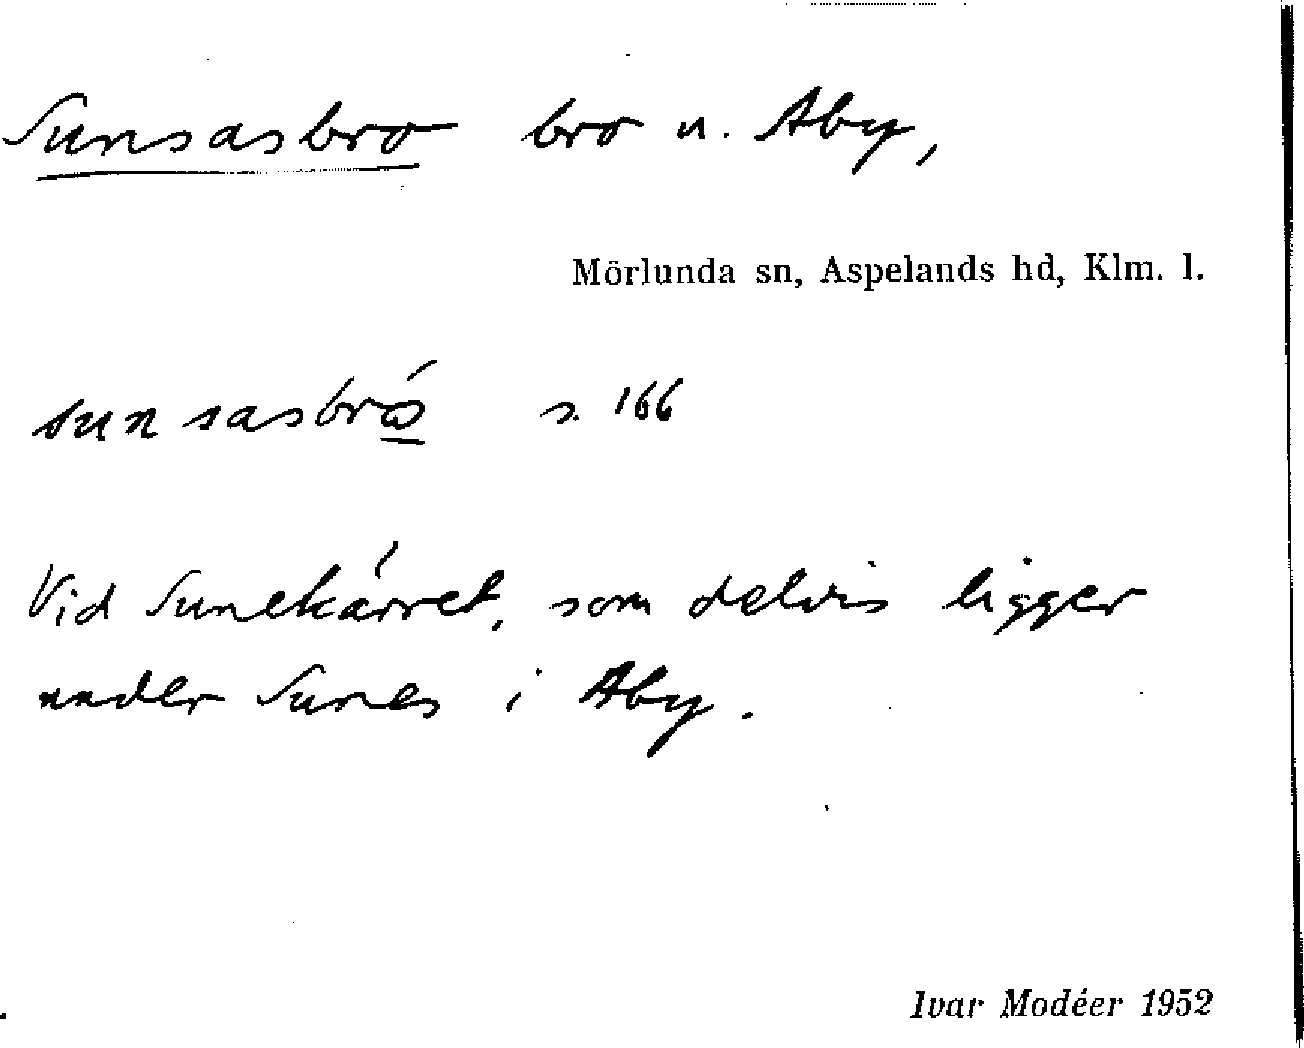 Sunsasbro bro u. Åby,
Mörlunda sn, Aspelands hd, Klm. l.
sunsasbró s. 166
Vid Sunekärret, som delvis ligger
under Sunes i Åby.
Ivar Modéer 1952